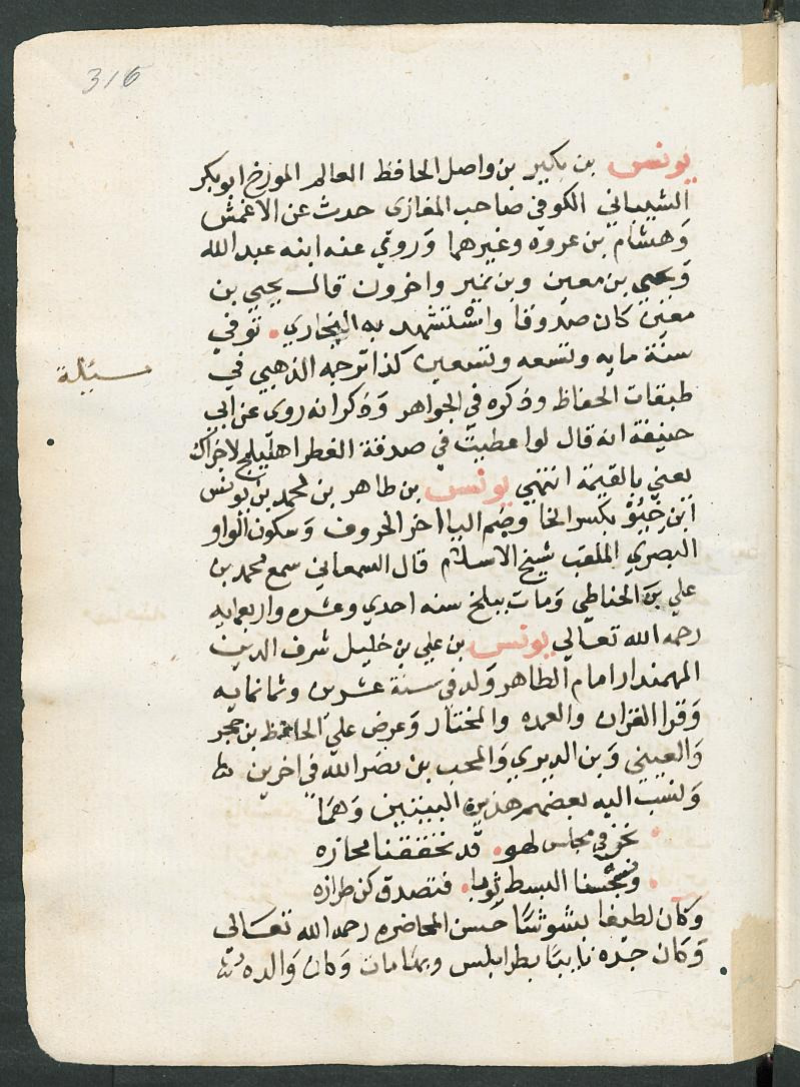 316
يونس بن بكير بن واصل الحافظ العالم المورخ ابو بكر
الشيباني الكوفي صاحب المغازى حدث عن الاعمش
وهشام بن عروه وغيرهما وروي عنه ابنه عبد الله
ويحيي بن معين وبن نمير واخرون قال يحيي بن
معين كان صدوقا واستشهد به البخاري . توفي
سنة مايه وتسعه وتسعين كذا ترجمه الذهبي في
مسئلة
طبقات الحفاظ وذكره في الجواهر وذكر انه روى عن ابي
حنيفة انه قال لو اعطيت في صدقة الفطر اهليلج لاجزاك
يعني بالقيمة انتهي يونس بن طاهر بن محمد بن يونس
ابن خيو بكسر الخا وضم اليا اخر الحروف وسكون الواو
البصري الملقب شيخ الاسلام قال السمعاني سمع محمد بن
علي بن الحناطي ومات ببلخ سنه احدي وعشره واربعمايه
رحمه الله تعالي يونس بن علي بن خليل شرف الدين
المهمندار امام الظاهر ولد في سنة عشرين وثمانمايه
وقرا القران والعمده والمختار وعرض علي الحافظ بن حجر
والعيني وبن الديري والمحب بن نصر الله في اخرين
ونسب اليه بعضهم هذين البيتين وهما
نحن في مجلس لهو . قد تحققنا مجازه
البسط ثوبا . فتصدق كن طرازه
وكان لطيفا بشوشا حسن المحاضره رحمه الله تعالى
وكان جده نايبا بطرابلس وبها مات وكان والده